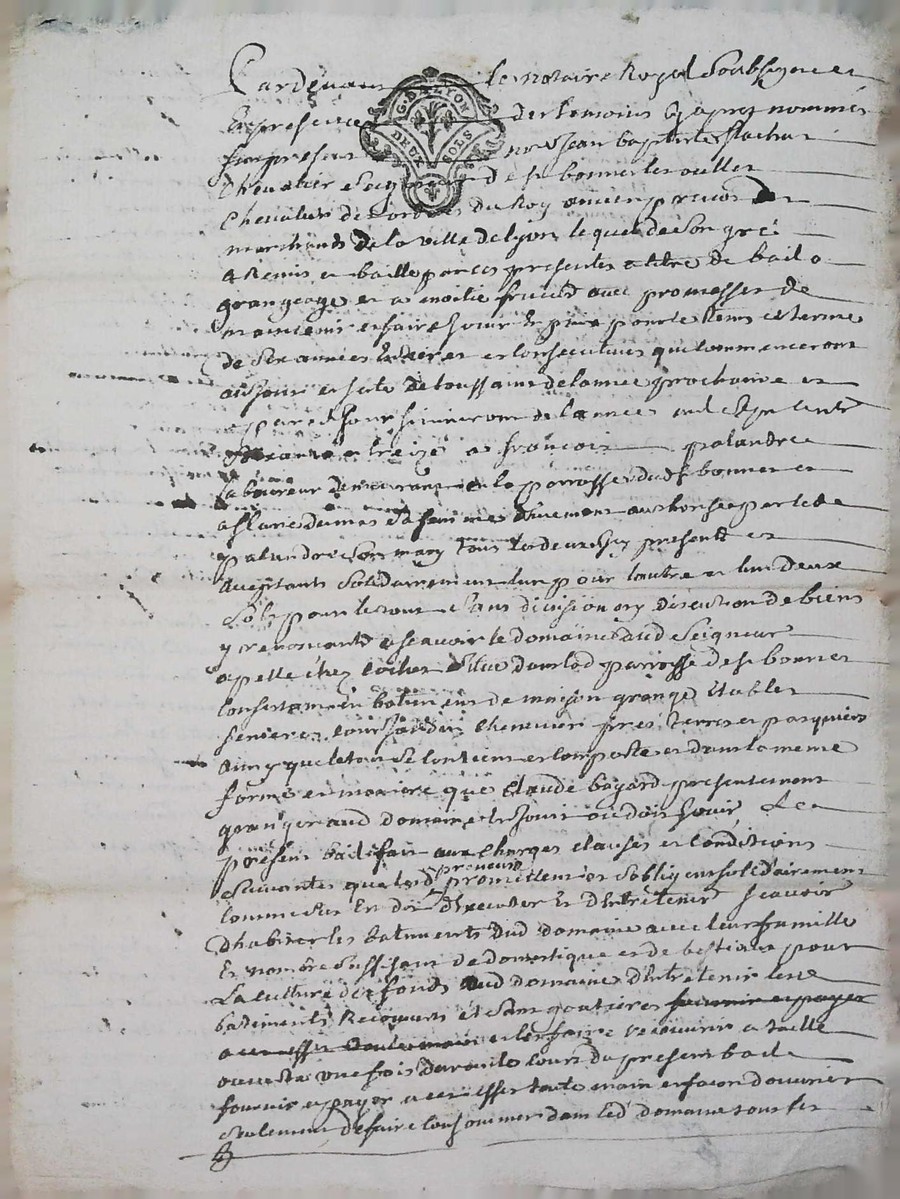 Pardevant le notaire Royal soubsigné et
En presence des temoins cy apres nommés
fut present mre Jean baptiste flachat
Chevalier seigneur de st bonnet les oulles
Chevalier de l'ordre du Roy ancien prevost des
marchands de la ville de lyon lequel de son gré
a Remis et baillé par ces presentes a titre de bail a
grangeage et a moitie fruicts avec promesses de
maintenir et faire jouir pour le tems et terme
de six années Entieres et consecutives qui commenceront
au jour et feste de toussaint de l'année prochaine et
a pareil jour finiront de l'année mil sept cents
et treize a françois palandre
laboureur demeurant en la parroisse dud st bonnet et
a dumas sa femme düement authorisée par led
palandre son mary tous les deux icy presents et
acceptants solidairement l'un pour l'autre et l'un deux
seul pour le tout sans division ny discution de biens
y renonceants a scavoir le domaine aud seigneur
apellé chez situé dans lad parroisse de st bonnet
consistant en batiments de maison grange Etables
fenieres cour jardin cheneviere prés terres et pasquiers
ainsy que le tout se contient et comporte et dans la meme
forme et maniere que Claude bayard presentement
granger aud domaine en jouit ou doit jouir Le
present bail fait aux charges clauses et conditions
suivantes que lesd preneurs promettent et s'obligent solidairement
comme dit Est d'Executer Et d'Entretenir scavoir
d'habiter les batiments dud domaine avec leur famille
Et nombre suffisant de domestique et de bestiaux pour
La culture des fonds dud domaine d'Entretenir les
batiments Recouverts et sans goutieres fournir et payer
a et les faire recouvrir a taille
ouverte une fois durant le cours du present bail
fournir et payer a cet effet toute main et façon d'ouvrier
seulement de faire consommer dans led domaine tous les